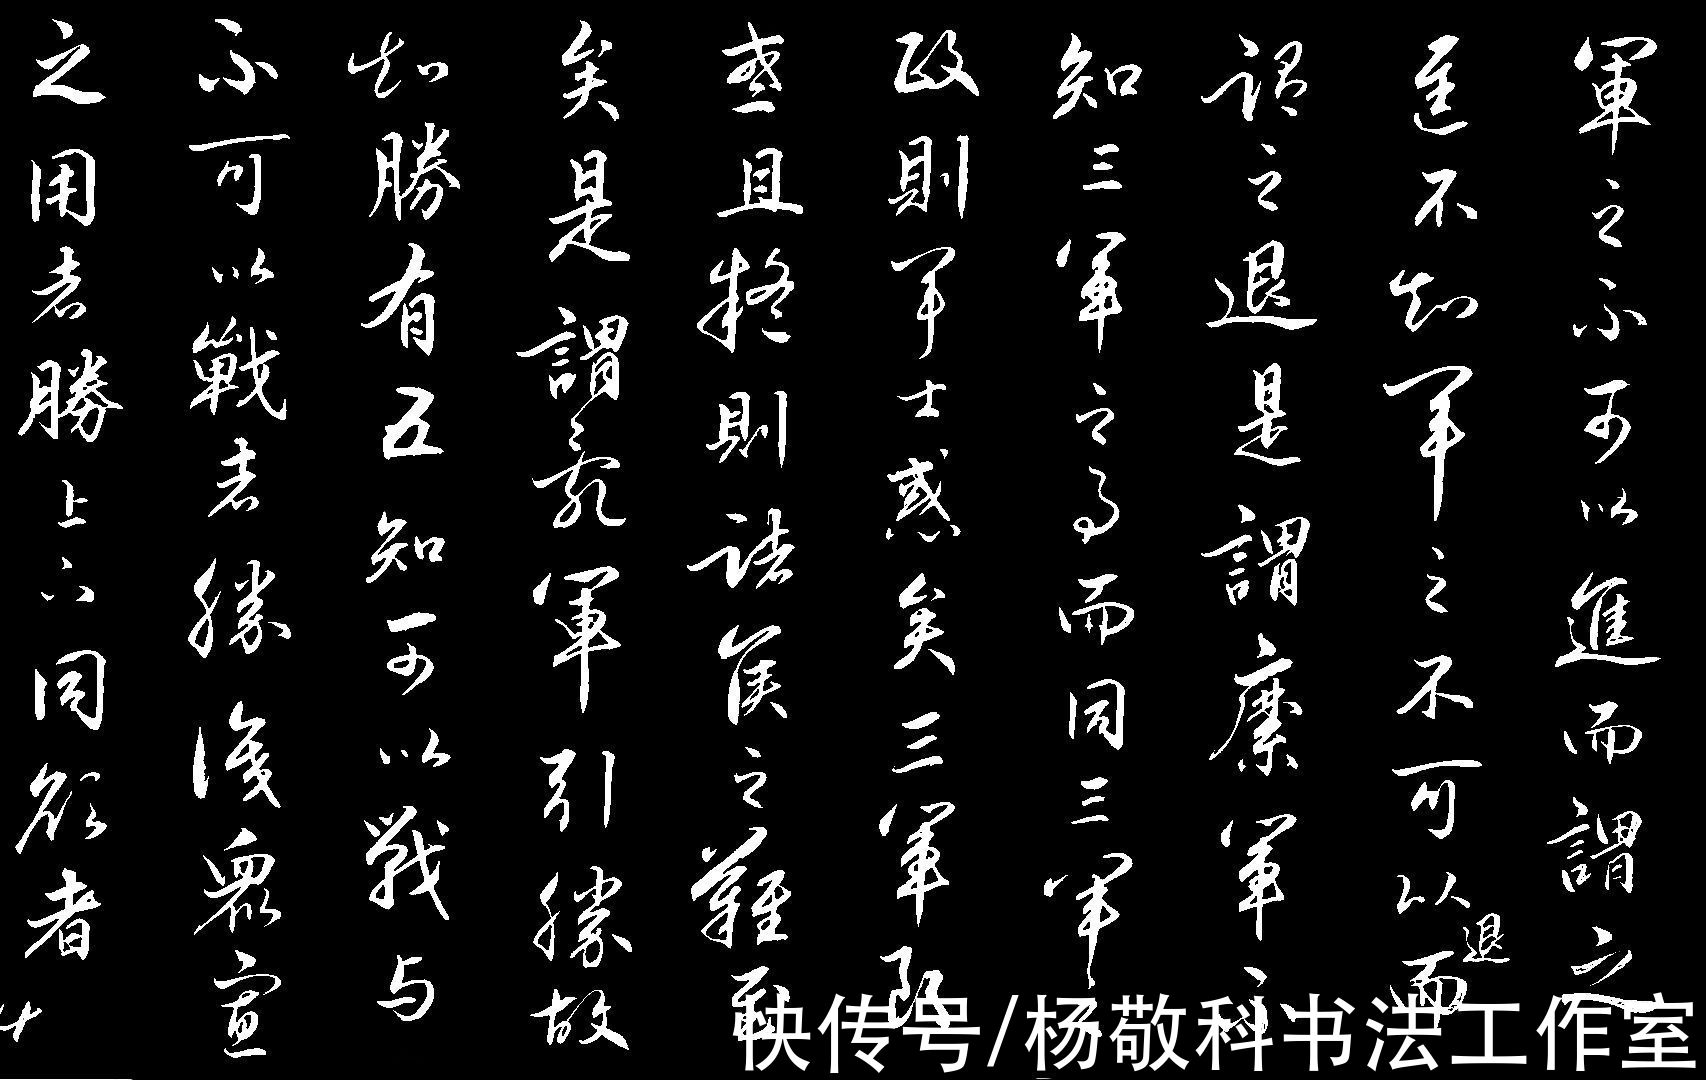 軍之不可以進而謂之
進不知軍之不可以退而
謂之退是謂縻軍
知三軍之事而同三軍之
政則軍士惑矣三軍既
惑且疑則諸侯之難
矣是謂亂軍引勝故
知勝有五知可以戰与
不可以戰者勝識衆寡
之用者勝上下同欲者
快传号/杨敬科书法工作室